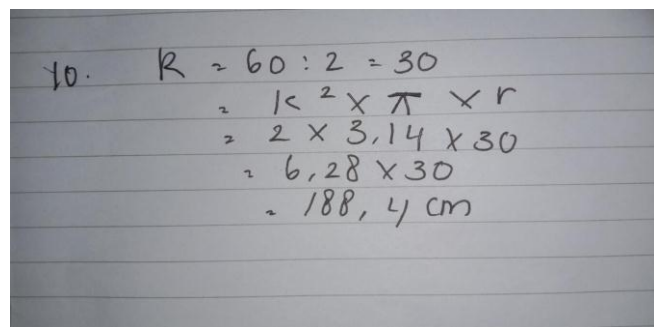 10. R = 60 : 2 = 30
= K ² x π x r
= 2 x 3,14 x 30
= 6,28 x 30
= 188,4 cm